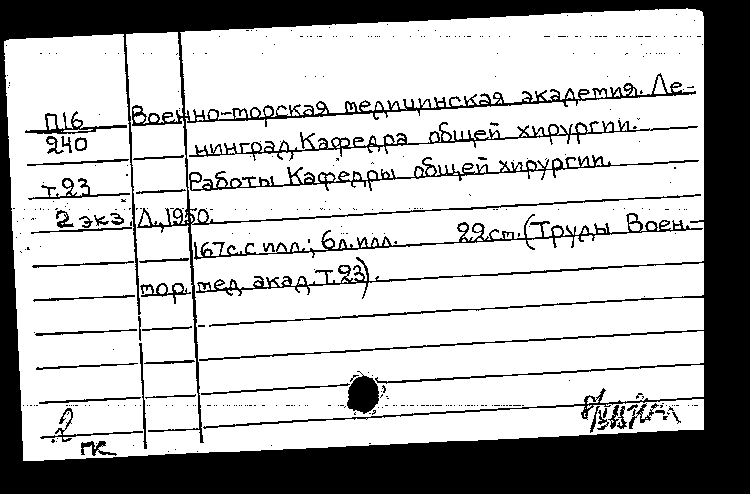 П16 Военно-морская медицинская академия. Ле-
240 нинград. Кафедра общей хирургии.
т.23 Работы Кафедры общей хирургии.
2 экз. Л., 1950.
167с.с илл.; 6л.илл. 22см. (Труды Воен.-
мор. мед. акад. Т.23).
2
пк